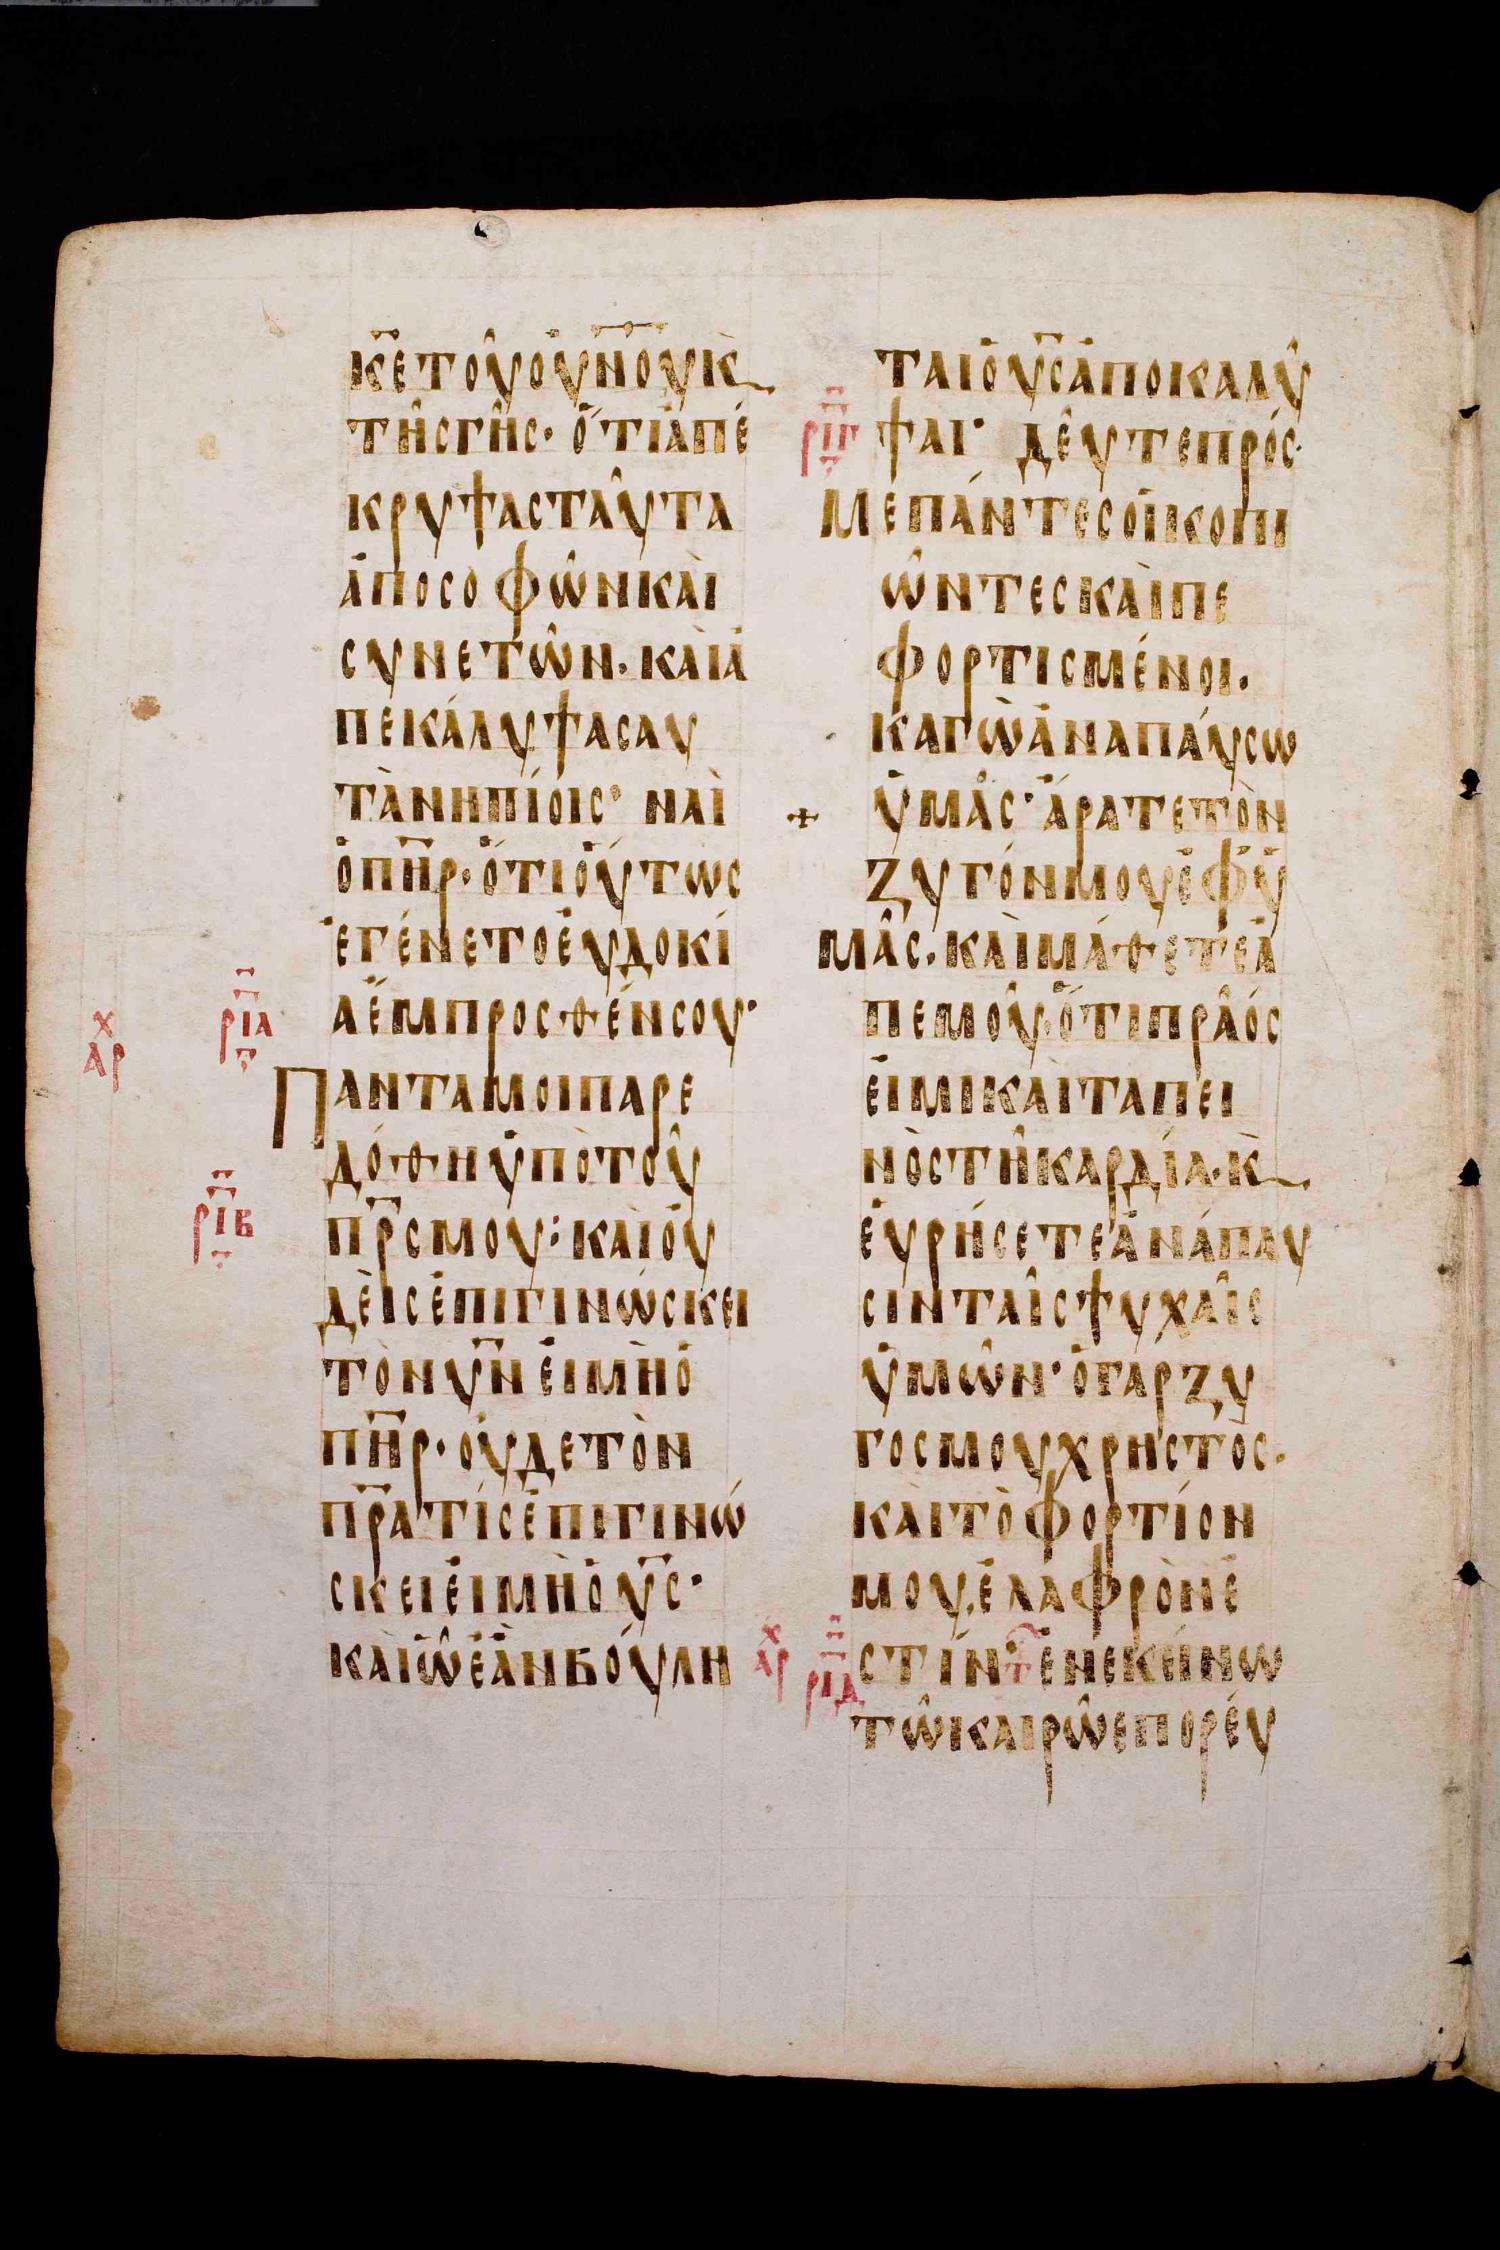 κ̅ε̅ τοῦ οὐ̅ν̅ο̅ῦ κ̀
τῆς γῆς· ὅτι ἀπέ
κρυψας ταῦτα
ἀπο σοφῶν καὶ
συνετῶν· καὶ ἀ
πεκάλυψας αυ
τὰ νηπίοις· ναὶ
ὁ π̅η̅ρ̅· ὅτι οὕτως
ἐγένετο εὐδοκί
α ἔμπροσθέν σου·
ρια
χ
αρ
Παντα μοι παρε
δόθη ὑπὸ τοῦ
ριβ
π̅ρ̅ς̅ μου: καὶ οὐ
δεὶς ἐπιγινώσκει
τὸν υ̅ν̅ εἰ μὴ ὁ
π̅η̅ρ̅· οὐδε τὸν
π̅ρ̅α̅ τίς ἐπιγινώ
σκει εἰ μὴ ὁ υ̅ς̅·
καὶ ᾧ ἐὰν βούλη
ται ὁ υ̅ς̅ ἀποκαλύ
ριγ
ψαι· δεῦτε πρός
Με πάντες οἱ κοπι
ῶντες καὶ πε
φορτισμένοι·
καγὼ ἀναπαύσω
+ ὑμᾶς· ἄρατε τὸν
ζυγόν μου ἐφ ὑ
μᾶς· καὶ μάθετε ἀ
π εμοῦ· ὅτι πρᾶός
εἰμι καὶ ταπει
νὸς τῆ καρδία· κ̀
εὑρήσετε ἀνάπαυ
σιν ταῖς ψυχαῖς
ὑμῶν· ὁ γάρ ζυ
γος μου χρηστος·
καὶ τὸ φορτίον
μου, ἐλαφρὸν ἐ
χ
αρ
ριδ
στίν· τ ἐν εκείνω
τῶ καιρῶ επορεύ